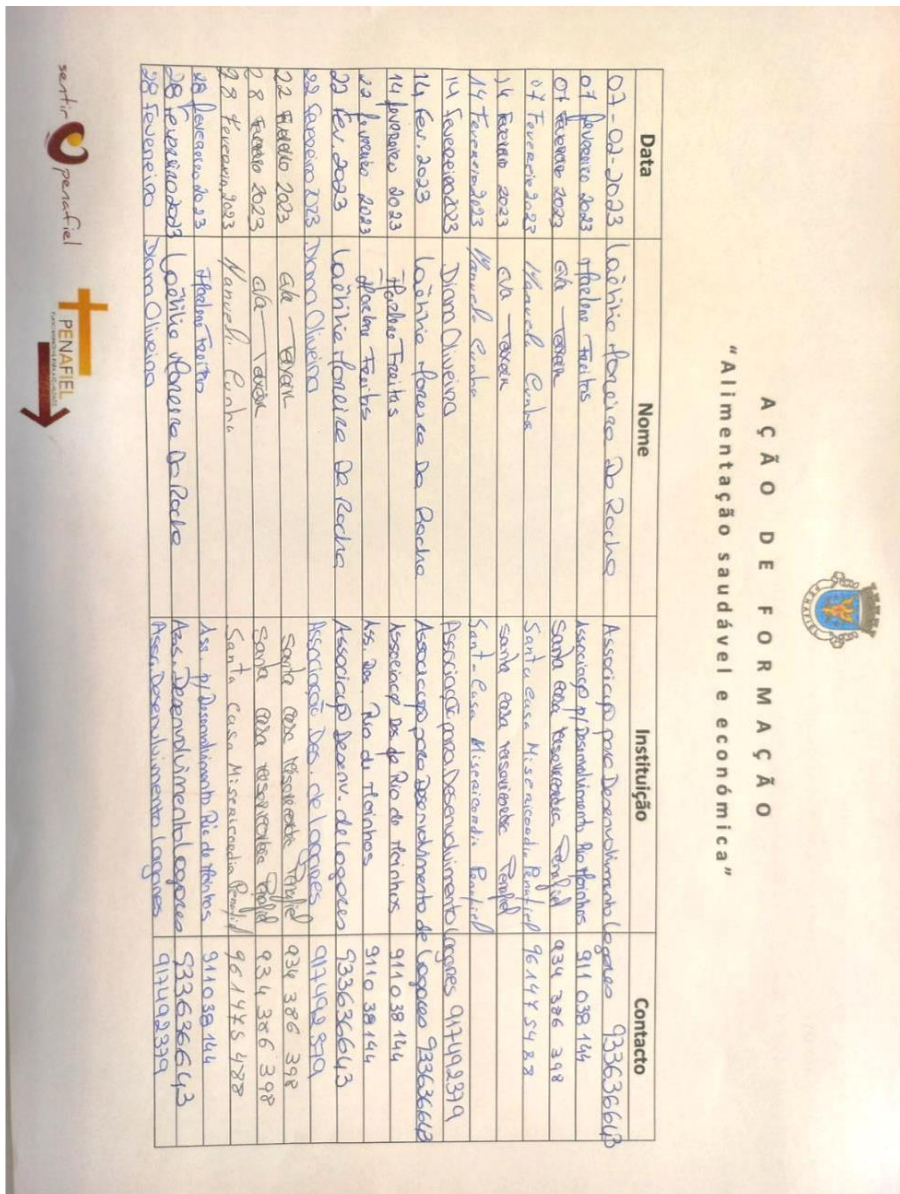 AÇÃO DE FORMAÇÃO
"Alimentação saudável e económica"
Data Nome Instituição Contacto
07-02-2023 Laëtitia Moreira Da Rocha Associação para Desenvolvimento Lagares 933636643
07 fevereiro 2023 Marlene Freitas Associação p/ Desenvolvimento Rio Moinhos 911 038 144
07 Fevereiro 2023 Santa Casa Misericórdia Penafiel 934 386 398
07 Fevereiro 2023 Manuela Cunha Santa Casa Misericordia Penafiel 961475488
14 Fevereiro 2023 Santa Casa Misericórdia Penafiel
14 Fevereiro 2023 Manuela Cunha Santa Casa Misericordia Penafiel
14 Fevereiro 2023 Diana Oliveira Associação para Desenvolvimento Lagares 917492379
14 Fev. 2023 Laëtitia Moreira Da Rocha Associação para Desenvolvimento de Lagares 933636643
14 fevereiro 2023 Marlene Freitas Associação Des de Rio de Moinhos 911038144
22 fevereiro 2023 Marlene Freitas Ass. Des. Rio de Moinhos 911038144
22 Fev. 2023 Laëtitia Moreira Da Rocha Associação Desenv. de Lagares 933636643
22 Fevereiro 2023 Diana Oliveira Associação Des. de Lagares 917492379
22 Fevereiro 2023 Santa Casa Misericórdia Penafiel 934 386 398
28 Fevereiro 2023 Santa Casa Misericórdia Penafiel 934 386 398
28 Fevereiro 2023 Manuela Cunha Santa Casa Misericordia Penafiel 961475488
28 fevereiro 2023 Marlene Freitas Ass. p/ Desenvolvimento Rio de Moinhos 911038144
28 Fevereiro 2023 Laëtitia Moreira Da Rocha Ass. Desenvolvimento Lagares 933636643
28 Fevereiro Diana Oliveira Assoc. Desenvolvimento Lagares 917492379
sentir penafiel
PENAFIEL